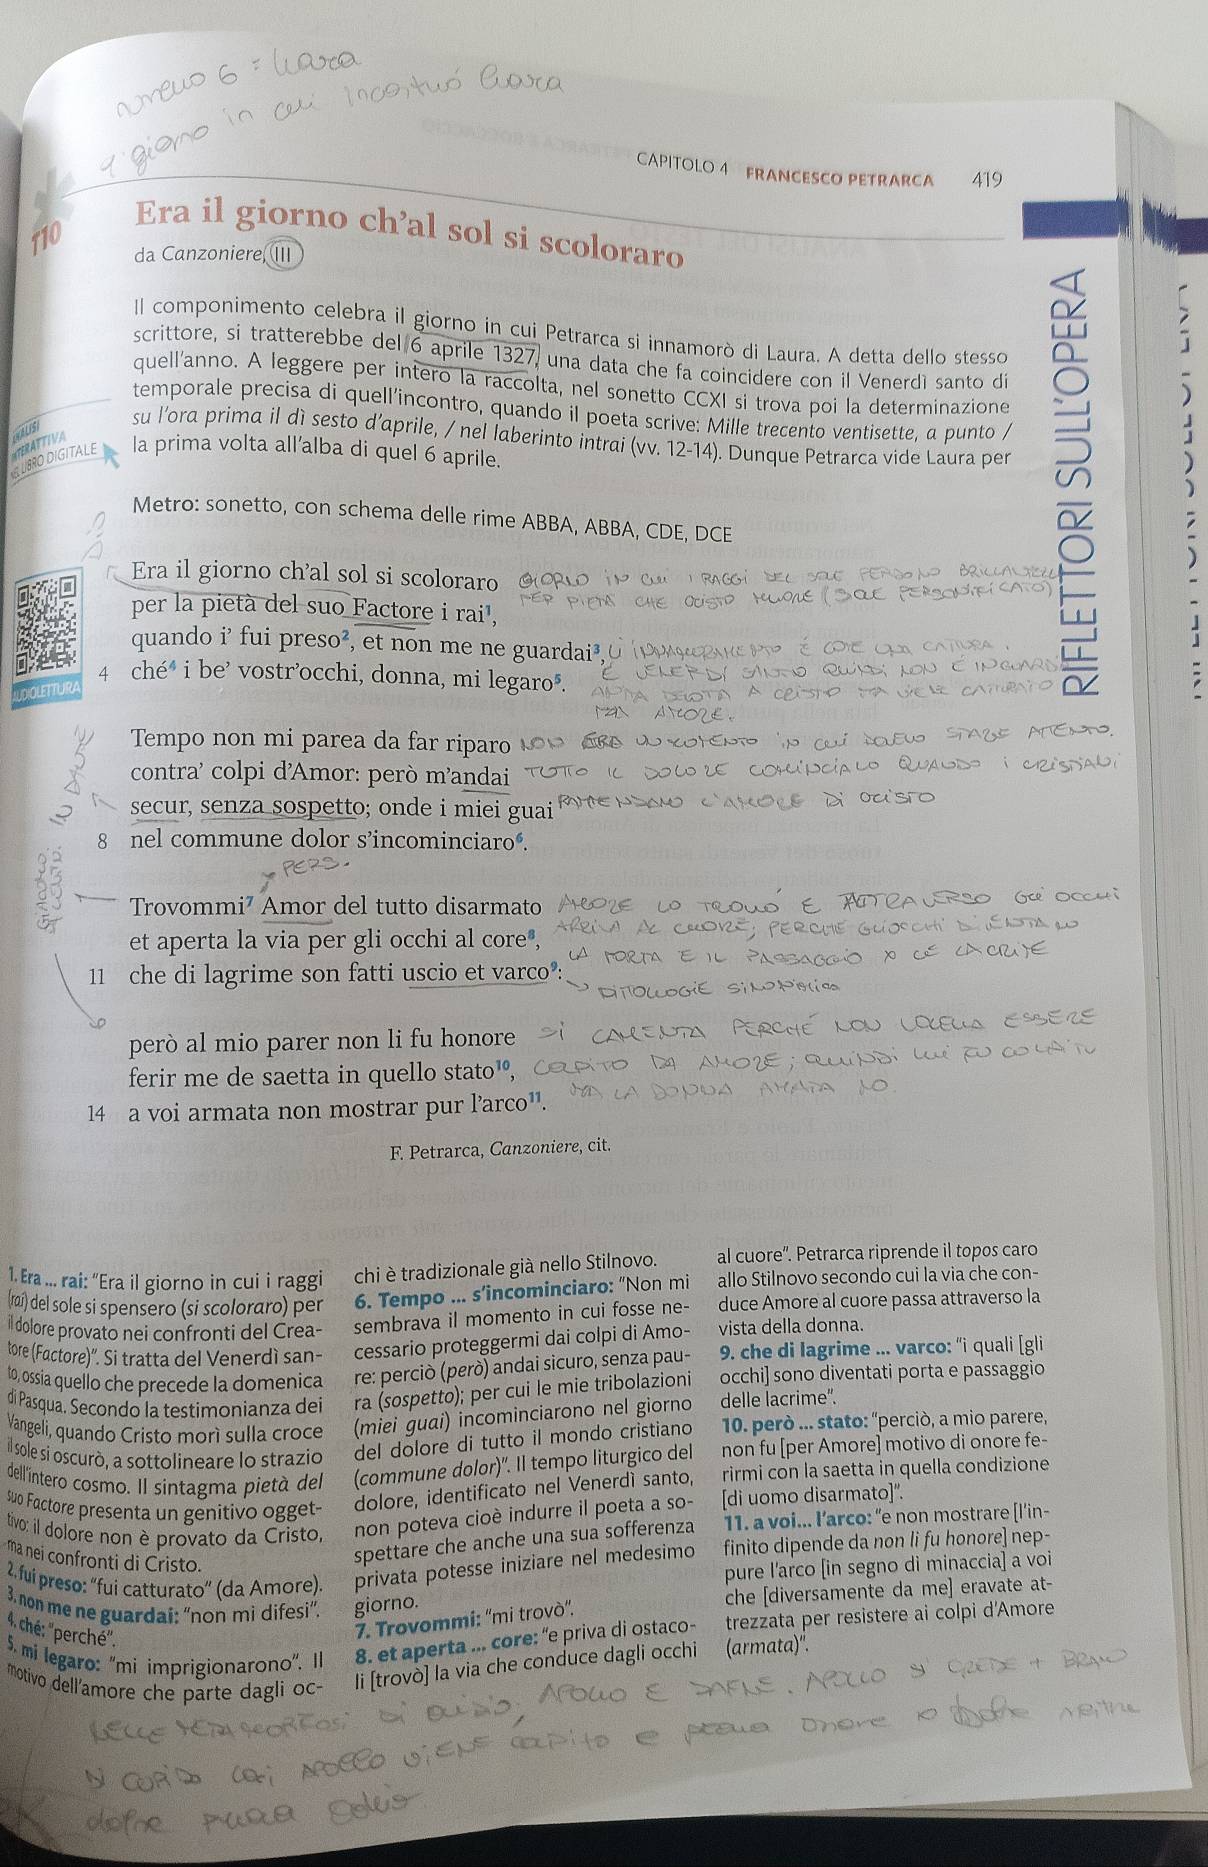 numero 6 = Laura
giorno in cui incontrò Laura
CAPITOLO 4 FRANCESCO PETRARCA 419
T10
Era il giorno ch'al sol si scoloraro
da Canzoniere, III
Il componimento celebra il giorno in cui Petrarca si innamorò di Laura. A detta dello stesso
scrittore, si tratterebbe del 6 aprile 1327, una data che fa coincidere con il Venerdì santo di
quell'anno. A leggere per intero la raccolta, nel sonetto CCXI si trova poi la determinazione
temporale precisa di quell'incontro, quando il poeta scrive: Mille trecento ventisette, a punto /
su l'ora prima il dì sesto d'aprile, / nel laberinto intrai (vv. 12-14). Dunque Petrarca vide Laura per
la prima volta all'alba di quel 6 aprile.
ANALISI
INTERATTIVA
NEL LIBRO DIGITALE
RIFLETTORI SULL'OPERA
Metro: sonetto, con schema delle rime ABBA, ABBA, CDE, DCE
Dio
Era il giorno ch'al sol si scoloraro GIORNO IN CUI I RAGGI DEL SOLE PERDONO
per la pietà del suo Factore i rai¹, PER PIETÀ CHE CRISTO MUORE (SOLE PERSONIFICATO)
quando i' fui preso², et non me ne guardai³, L'INNAMORAMENTO È COME UNA CATTURA.
4 ché⁴ i be' vostr'occhi, donna, mi legaro⁵. È VENERDÌ SANTO QUINDI NON È IN GUARDIA
A CRISTO MA VIENE CATTURATO
DA AMORE.
AUDIOLETTURA
Tempo non mi parea da far riparo NON ERA UN MOMENTO IN CUI DOVEVO STARE ATTENTO.
contra' colpi d'Amor: però m'andai TUTTO IL DOLORE COMINCIALO QUANDO I CRISTIANI
secur, senza sospetto; onde i miei guai L'AMORE DI CRISTO
8 nel commune dolor s'incominciaro⁶.
PERS.
Trovommi⁷ Amor del tutto disarmato AMORE LO TROVÒ E ATTRAVERSO GLI OCCHI
et aperta la via per gli occhi al core⁸, ARRIVA AL CUORE; PERCHÉ GLI OCCHI DIVENTANO
11 che di lagrime son fatti uscio et varco⁹: LA PORTA E IL PASSAGGIO X LE LACRIME
DITTOLOGIE SINONIMICA
però al mio parer non li fu honore SI LAMENTA PERCHÉ NON VOLEVA ESSERE
ferir me de saetta in quello stato¹⁰, COLPITO DA AMORE; QUINDI LUI FU COLPITO
14 a voi armata non mostrar pur l'arco¹¹. MA LA DONNA AMATA NO.
F. Petrarca, Canzoniere, cit.
1. Era ... rai: "Era il giorno in cui i raggi
(rai) del sole si spensero (si scoloraro) per
il dolore provato nei confronti del Crea-
tore (Factore)". Si tratta del Venerdì san-
to, ossia quello che precede la domenica
di Pasqua. Secondo la testimonianza dei
Vangeli, quando Cristo morì sulla croce
il sole si oscurò, a sottolineare lo strazio
dell'intero cosmo. Il sintagma pietà del
suo Factore presenta un genitivo ogget-
tivo: il dolore non è provato da Cristo,
ma nei confronti di Cristo.
2. fui preso: "fui catturato" (da Amore).
3. non me ne guardai: "non mi difesi".
4. ché: "perché".
5. mi legaro: "mi imprigionarono". Il
motivo dell'amore che parte dagli oc-
chi è tradizionale già nello Stilnovo.
6. Tempo ... s'incominciaro: "Non mi
sembrava il momento in cui fosse ne-
cessario proteggermi dai colpi di Amo-
re: perciò (però) andai sicuro, senza pau-
ra (sospetto); per cui le mie tribolazioni
(miei guai) incominciarono nel giorno
del dolore di tutto il mondo cristiano
(commune dolor)". Il tempo liturgico del
dolore, identificato nel Venerdì santo,
non poteva cioè indurre il poeta a so-
spettare che anche una sua sofferenza
privata potesse iniziare nel medesimo
giorno.
7. Trovommi: "mi trovò".
8. et aperta ... core: "e priva di ostaco-
li [trovò] la via che conduce dagli occhi
al cuore". Petrarca riprende il topos caro
allo Stilnovo secondo cui la via che con-
duce Amore al cuore passa attraverso la
vista della donna.
9. che di lagrime ... varco: "i quali [gli
occhi] sono diventati porta e passaggio
delle lacrime".
10. però ... stato: "perciò, a mio parere,
non fu [per Amore] motivo di onore fe-
rirmi con la saetta in quella condizione
[di uomo disarmato]".
11. a voi... l'arco: "e non mostrare [l'in-
finito dipende da non li fu honore] nep-
pure l'arco [in segno di minaccia] a voi
che [diversamente da me] eravate at-
trezzata per resistere ai colpi d'Amore
(armata)".
APOLLO E DAFNE. APOLLO SI CREDE + BRAVO
DELLE METAMORFOSI DI OVIDIO,
DI CUPIDO APOLLO VIENE colpito e prova amore mentre
dafne prova odio